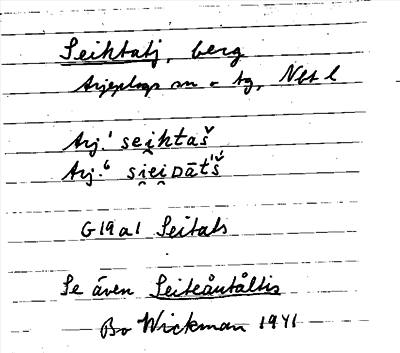 Seihtatj, berg
Arjeplogs sn o tg, Nbt l
Arj.¹ sei̯htaš
Arj.⁶ si̯ei̯Dāt'š́
G19a1 Seitats
Se även Seiteåutåltis
Bo Wickman 1941